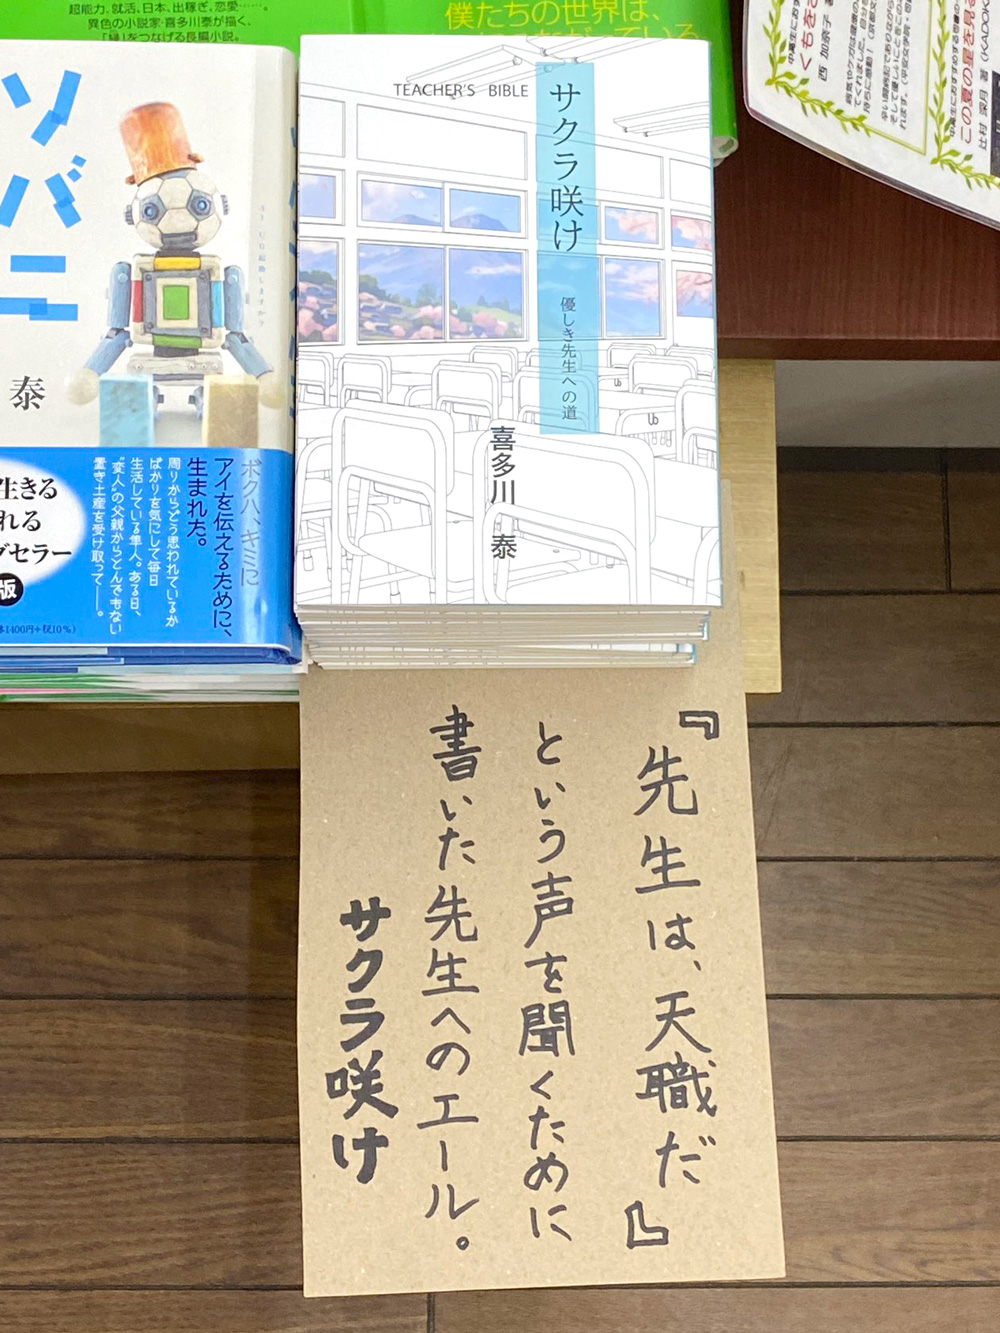 超能力、就活、日本、出稼ぎ、恋愛……。
異色の小説家・喜多川泰が描く、
「縁」をつなげる長編小説。
僕たちの世界は、
TEACHER'S BIBLE
サクラ咲け
優しき先生への道
喜多川 泰
ソバニ
泰
ボクハ、キミに
アイを伝えるために、
生まれた。
周りからどう思われているか
ばかりを気にして毎日
生活している隼人。ある日、
"変人"の父親からとんでもない
置き土産を受け取って――。
生きる
れる
グセラー
版
1400円+税10%)
くもをさ
西 加奈子 著
この夏の星を見る
辻村 深月 著 (KADOK
『先生は、天職だ』
という声を聞くために
書いた先生へのエール。
サクラ咲け